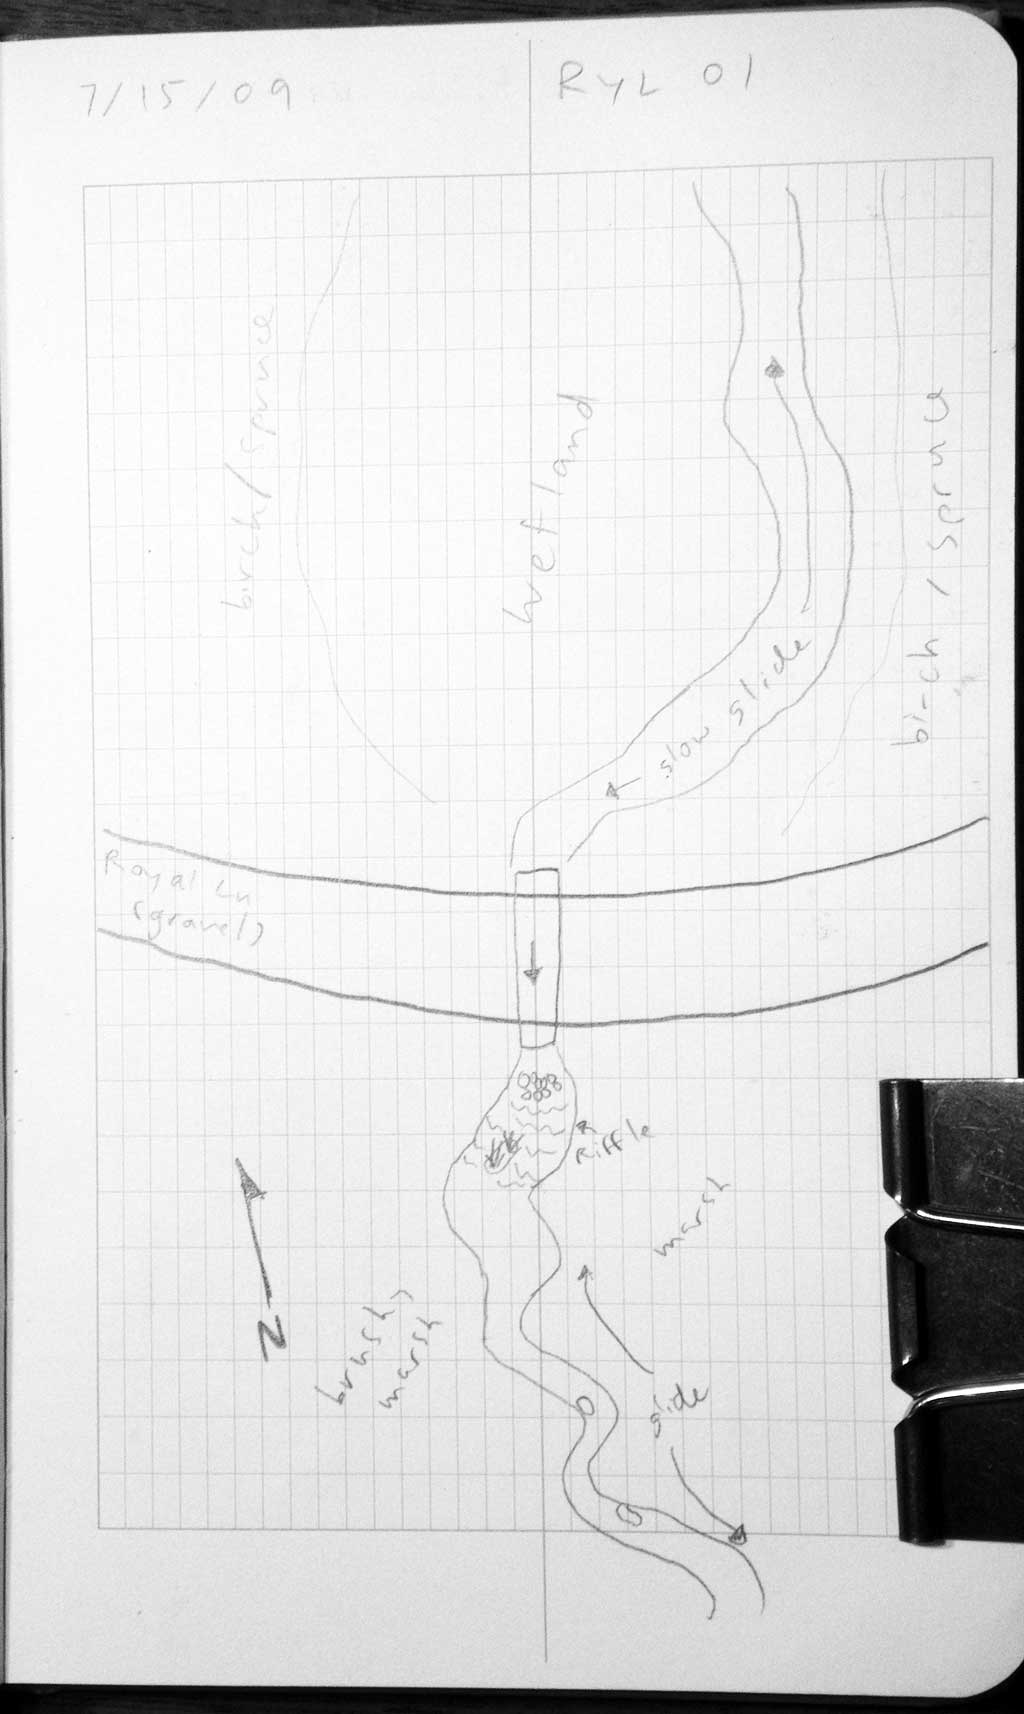 7/15/09
RYL 01
birch/spruce
wetland
birch / spruce
slow glide
Royal Ln
(gravel)
riffle
marsh
N
brush,
marsh
glide